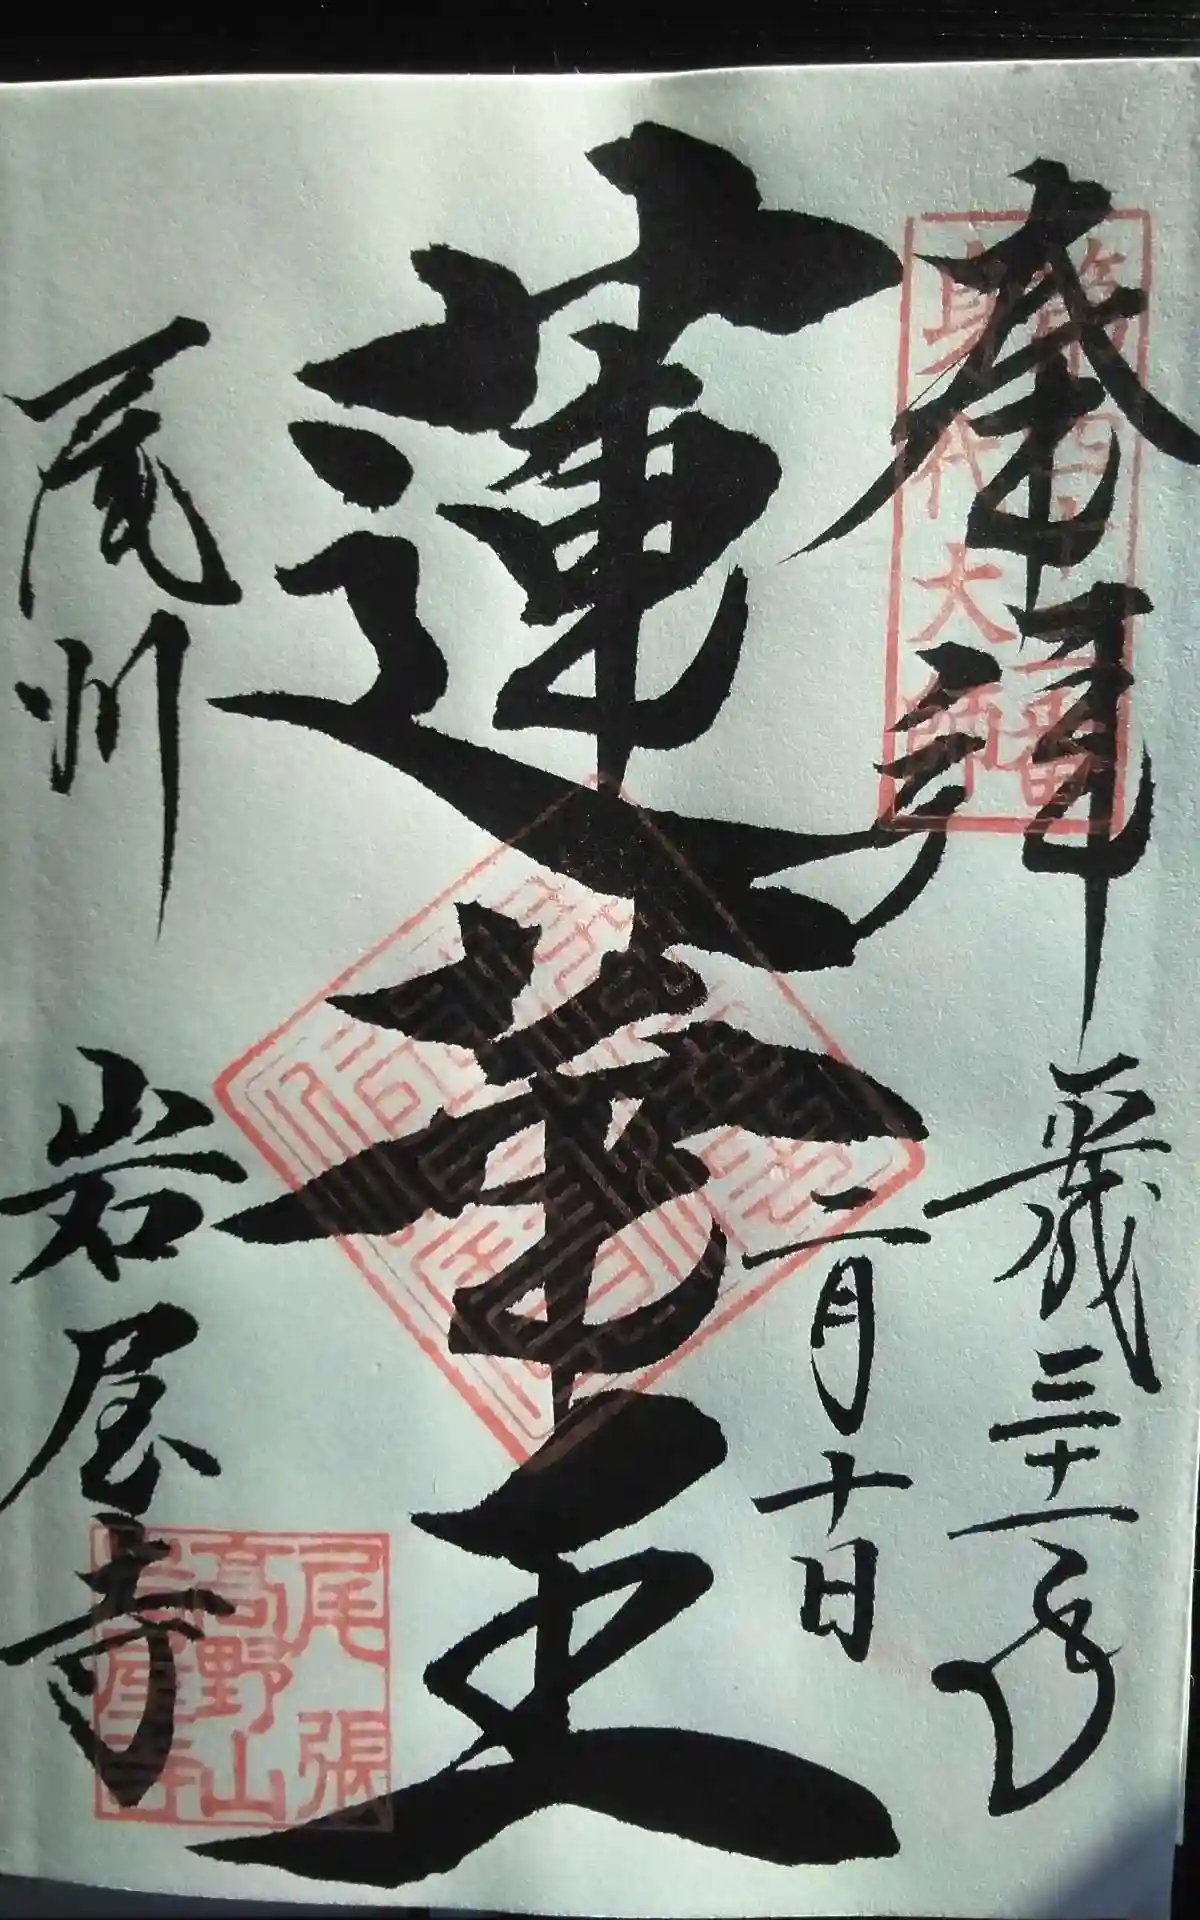 奉拝
平成三十一年
二月十日
蓮華王
尾州
岩屋寺
第四十三番
身代大師
尾張
高野山
岩屋寺